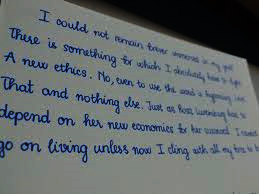 I could not remain forever immersed in my past
There is something for which I absolutely have to fight.
A new ethics. No, even to use the word is beginning
That and nothing else. Just as Rosa Luxemburg has to
depend on her new economics for her survival I cannot
go on living unless now I cling with all my force to